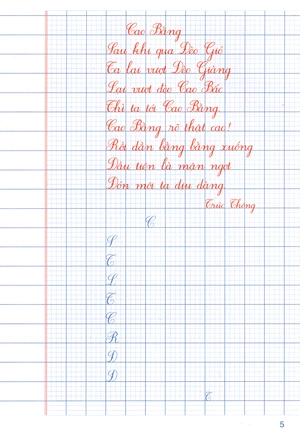 Cao Bằng
Sau khi qua Đèo Gió
Ta lại vượt Đèo Giàng
Lại vượt đèo Cao Bắc
Thì ta tới Cao Bằng.
Cao Bằng rõ thật cao!
Rồi dần bằng bằng xuống
Đầu tiên là mận ngọt
Đón môi ta dịu dàng.
Trúc Thông
C
S
T
L
T
C
R
Đ
Đ
T
5